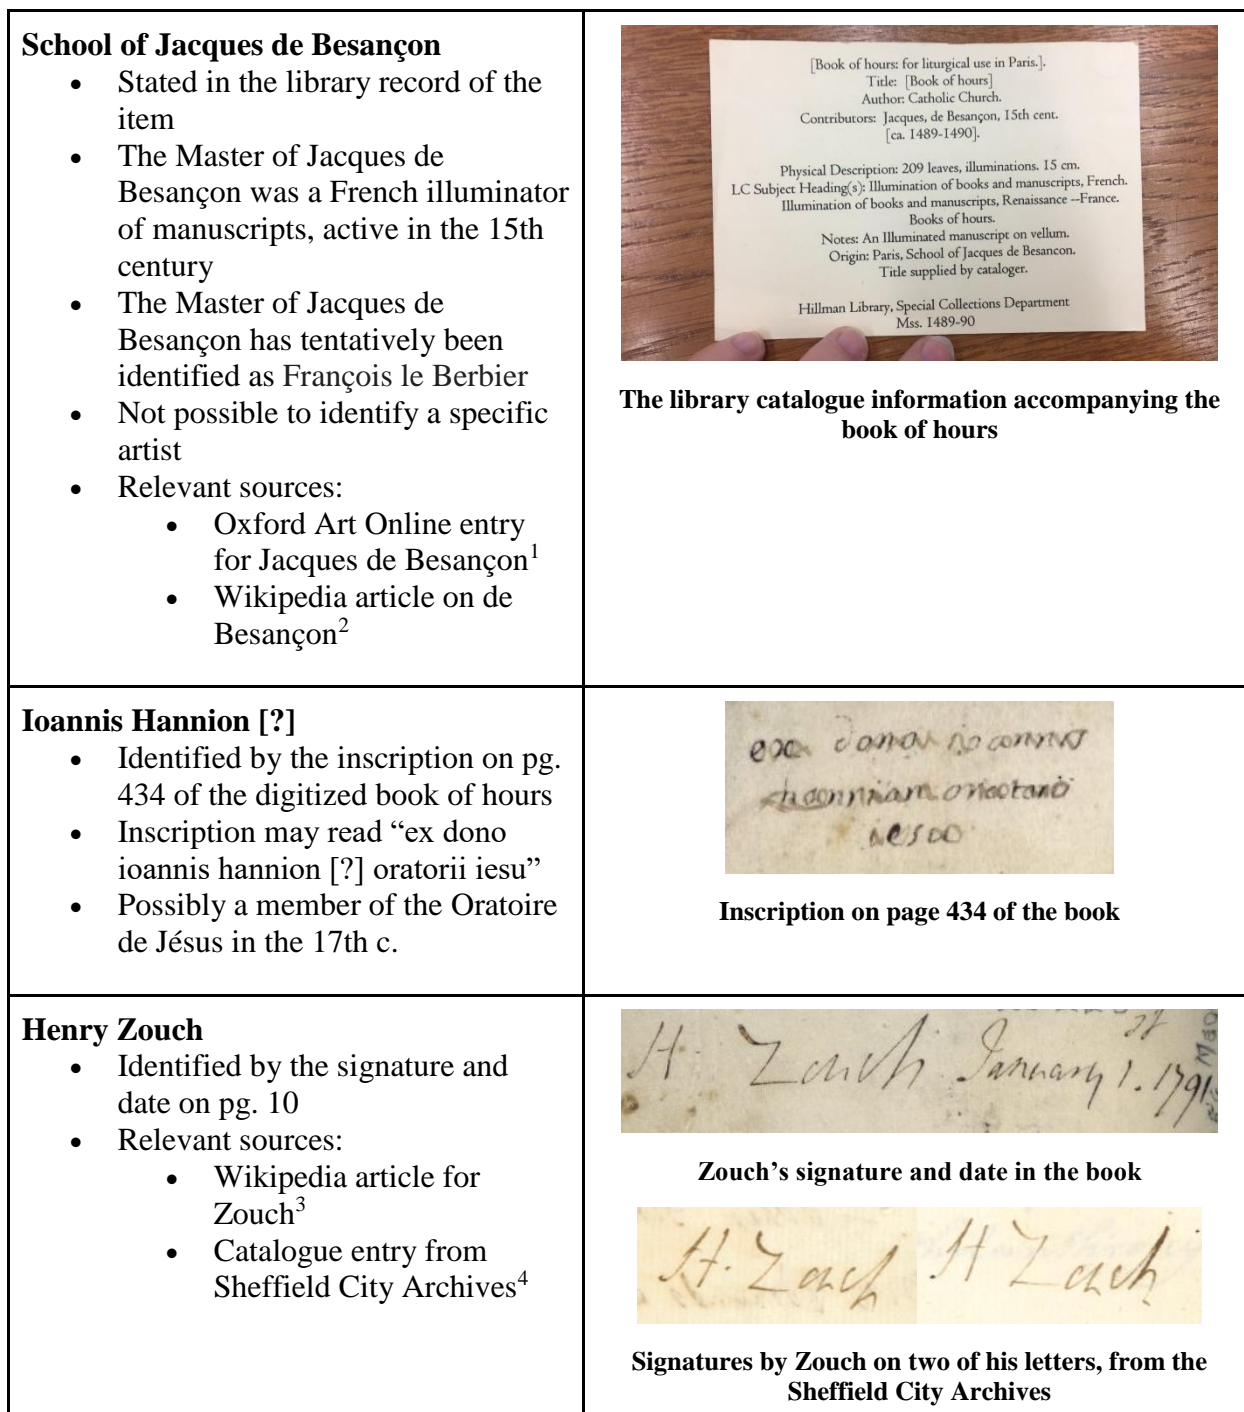 School of Jacques de Besançon
• Stated in the library record of the
item
• The Master of Jacques de
Besançon was a French illuminator
of manuscripts, active in the 15th
century
• The Master of Jacques de
Besançon has tentatively been
identified as François le Berbier
• Not possible to identify a specific
artist
• Relevant sources:
• Oxford Art Online entry
for Jacques de Besançon1
• Wikipedia article on de
Besançon2
[Book of hours: for liturgical use in Paris.].
Title: [Book of hours]
Author: Catholic Church.
Contributors: Jacques, de Besançon, 15th cent.
[ca. 1489-1490].
Physical Description: 209 leaves, illuminations. 15 cm.
LC Subject Heading(s): Illumination of books and manuscripts, French.
Illumination of books and manuscripts, Renaissance --France.
Books of hours.
Notes: An Illuminated manuscript on vellum.
Origin: Paris, School of Jacques de Besancon.
Title supplied by cataloger.
Hillman Library, Special Collections Department
Mss. 1489-90
The library catalogue information accompanying the
book of hours
Ioannis Hannion [?]
• Identified by the inscription on pg.
434 of the digitized book of hours
• Inscription may read “ex dono
ioannis hannion [?] oratorii iesu”
• Possibly a member of the Oratoire
de Jésus in the 17th c.
Inscription on page 434 of the book
Henry Zouch
• Identified by the signature and
date on pg. 10
• Relevant sources:
• Wikipedia article for
Zouch3
• Catalogue entry from
Sheffield City Archives4
H. Zouch January 1.st 1791
Zouch’s signature and date in the book
H. Zouch
H Zouch
Signatures by Zouch on two of his letters, from the
Sheffield City Archives